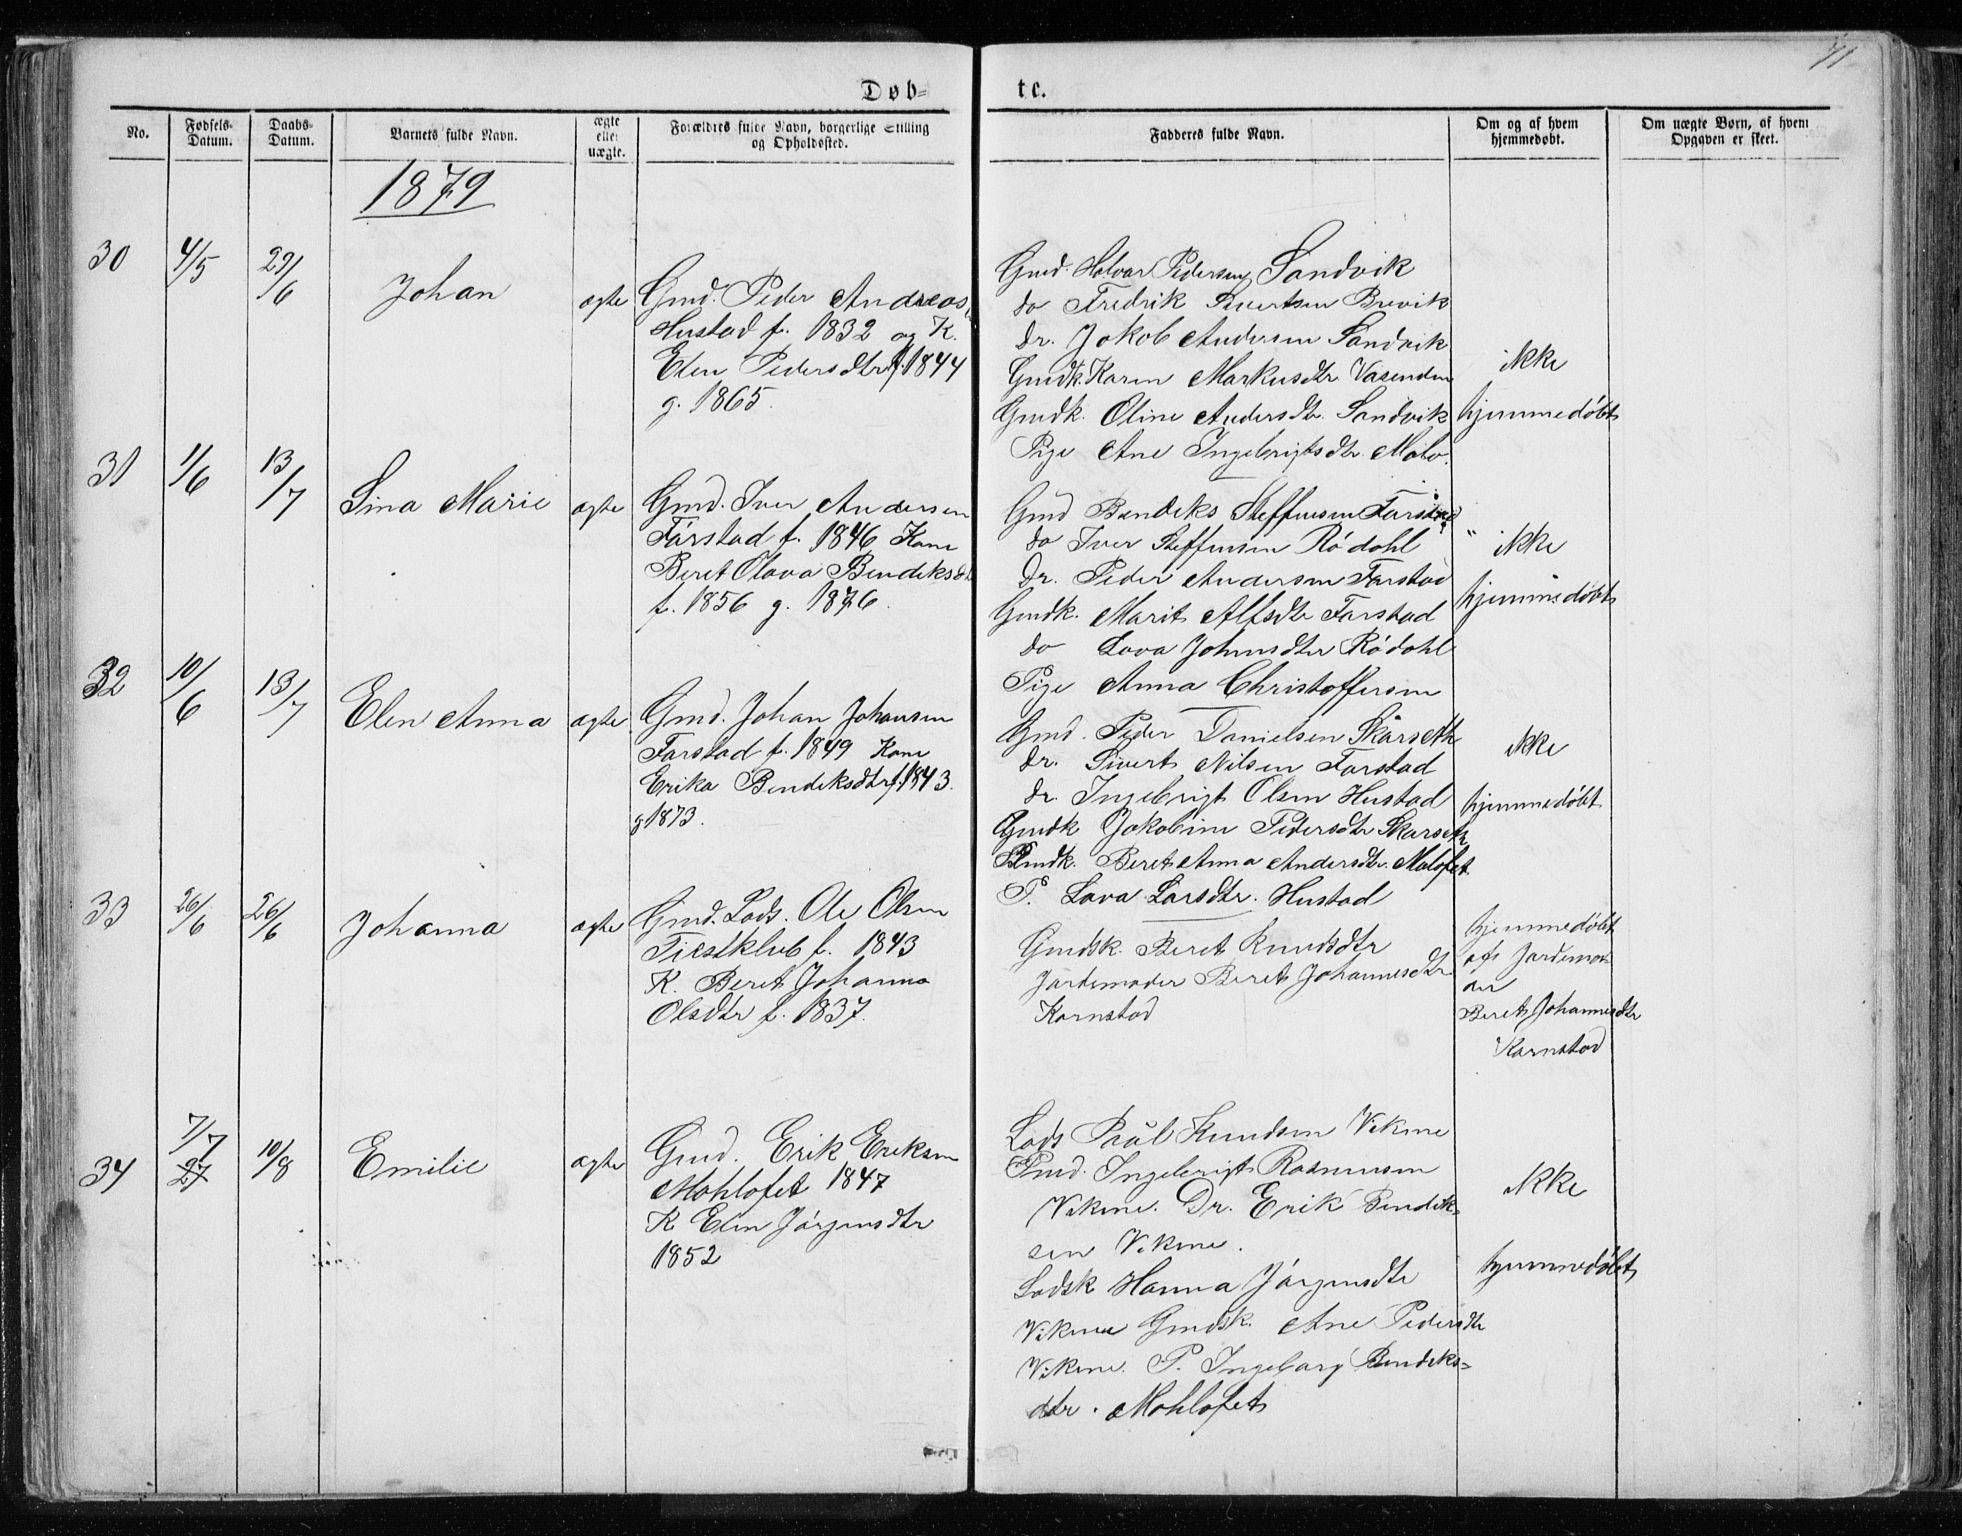 71
Døb-
te.
No.
Fødsels-Datum.
Daabs-Datum.
Barnets fulde Navn.
ægte eller uægte.
Forældres fulde Navn, borgerlige Stilling og Opholdssted.
Fadderes fulde Navn.
Om og af hvem hjemmedøbt.
Om uægte Børn, af hvem Opgaven er skeet.
1879
30
4/5
29/6
Johan
ægte
Gmd. Peder Andreas
Hustad f. 1832 og K.
Elen Pedersdtr f. 1844
g. 1865.
Gmd. Halvar Pedersen Sandvik
do Fredrik Sivertsen Brevik
Dr. Jakob Andersen Sandvik
Gmdk. Karen Markusdtr. Vasenden
Gmdk. Oline Andersdtr. Sandvik
Pige Ane Ingebrigtsdtr. Malo.
ikke
hjemmedøbt
31
1/6
13/7
Sina Marie
ægte
Gmd. Iver Andersen
Farstad f. 1846 Kone
Beret Olava Bendiksdt
f. 1856 g. 1876.
Gmd Bendeks Steffensen Farstad
do Iver Steffensen Rødahl
Dr. Peder Andersen Farstad
Gmdk. Marit Alfsdtr Farstad
do Lava Johnsdtr Rødahl
Pige Anna Christoffersen
" ikke
hjemmedøbt
32
10/6
13/7
Elen Anna
ægte
Gmd. Johan Johansen
Farstad f. 1849 Kone
Erika Bendeksdtr f. 1843.
g 1873.
Gmd. Peder Danielsen Skarseth
Dr. Sivert Nilsen Farstad
Dr. Ingebrigt Olsen Hustad
Gmdk Jakobine Pedersdtr Skarseth
Gmdk. Beret Anna Andersdtr. Malofet
P. Lava Larsdtr. Hustad
ikke
hjemmedøbt
33
26/6
26/6
Johanna
ægte
Gmd. Lods. Ole Olsen
f. 1843
K. Beret Johanna
Olsdtr f. 1837.
Gmdsk. Beret Knudsdtr
Jordemoder Beret Johannesdtr
Karnstad
hjemmedøbt
af Jordemod
er
Beret Johannesdtr
Karnstad
34
7/7
27
10/8
Emilie
ægte
Gmd. Erik Eriksen
Mohlofet 1847
K Elen Jørgensdtr
1852
Lods Paul Knudsen Vikene
Gmd. Ingebrigt Rasmussen
Vikene. Dr. Erik Bendik-
sen Vikene.
Lodsk Hanna Jørgensdtr
Vikene Gmdsk. Ane Pedersdtr
Vikene. P. Ingeborg Bendeks-
dtr. Mohlofet
ikke
hjemmedøbt